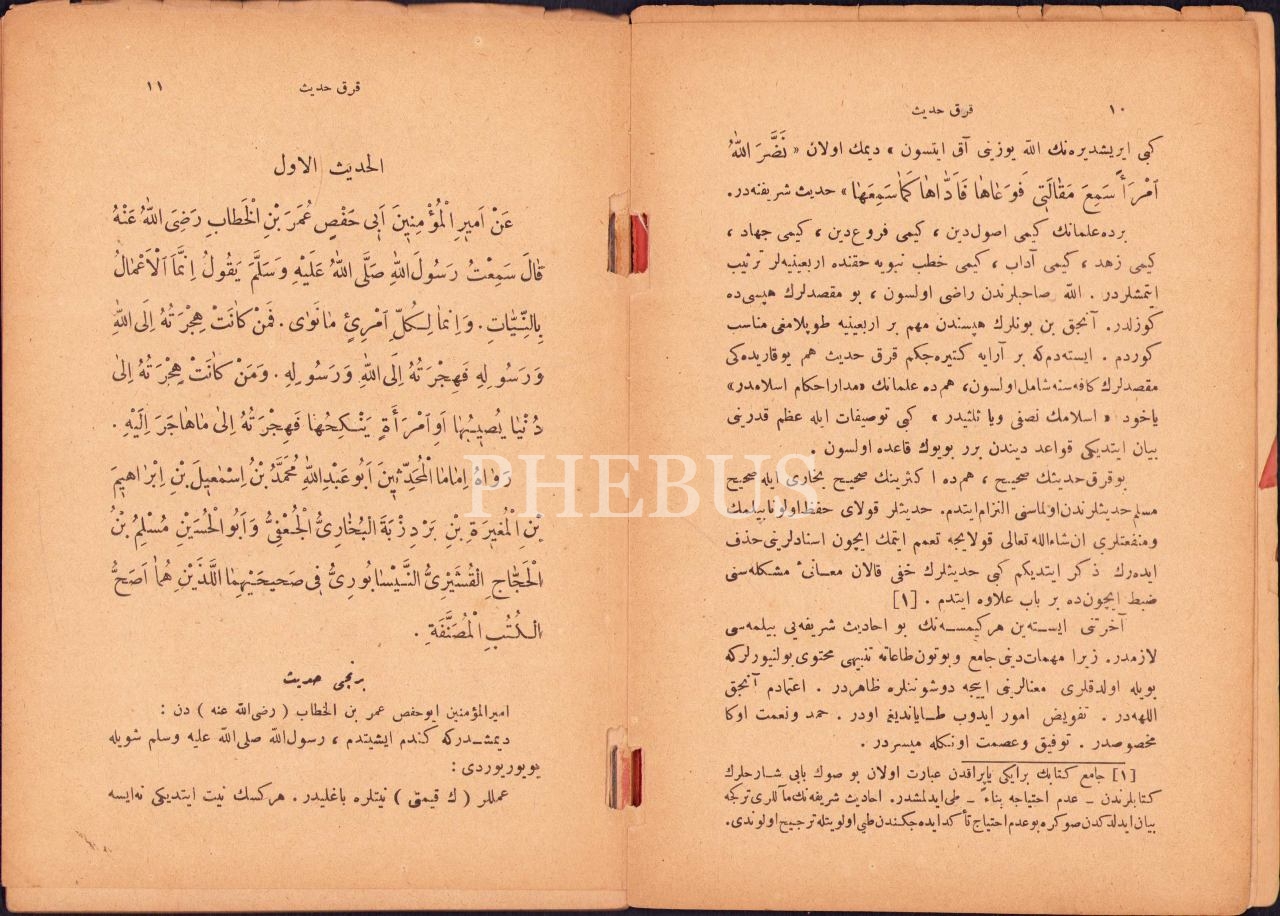 ١٠ قرق حديث
كبی ايريشديره‌نك الله يوزينی آق ايتسون » ديمك اولان « نَضَّرَ اللهُ
اَمْرَأً سَمِعَ مَقَالَتِی فَوَعَاهَا فَاَدَّاهَا كَمَا سَمِعَهَا » حديث شريفنه‌در.
برده علمانك كيمی اصول‌دين ، كيمی فروع‌دين ، كيمی جهاد ،
كيمی زهد ، كيمی آداب ، كيمی خطب نبويه حقنده اربعينيه‌لر ترتيب
ايتمشلردر . الله صاحبلرندن راضی اولسون ، بو مقصدلرك هپسی‌ده
كوزلدر. آنجق بن بونلرك هپسندن مهم بر اربعينيه طوپلامغی مناسب
كوردم . ايسته‌دم‌كه بر آرايه كتيره‌جكم قرق حديث هم يوقاريده‌كی
مقصدلرك كافه‌سنه شامل اولسون، هم‌ده علمانك «مدار احكام اسلامدر»
ياخود « اسلامك نصفی ويا ثلثيدر » كبی توصيفات ايله عظم قدرينی
بيان ايتديكی قواعد ديندن برر بويوك قاعده اولسون .
بوقرق حديثك صحيح ، هم‌ده اكثرينك صحيح بخاری ايله صحيح
مسلم حديثلرندن اولماسنی التزام ايتدم. حديثلر قولای حفظ اولونابيلمك
ومنفعتلری ان‌شاءالله تعالی قولايجه تعمم ايتمك ايچون اسنادلرينی حذف
ايده‌رك ذكر ايتديكم كبی حديثلرك خفی قالان معانیٔ مشكله‌سنی
ضبط ايچون‌ده بر باب علاوه ايتدم . [١]
آخرتی ايسته‌ين هركيمسه‌نك بو احاديث شريفه‌يی بيلمه‌سی
لازمدر. زيرا مهمات دينی جامع وبوتون طاعاته تنبيهی محتوی بولنيورلركه
بويله اولدقلری معنالرينی اييجه دوشوننلره ظاهردر . اعتمادم آنجق
اللهه‌در . تفويض امور ايدوب طاياندیغم اودر . حمد ونعمت اوكا
مخصوصدر . توفيق وعصمت اونكله ميسردر .
[١] جامع كتابك برايكی ياپراقدن عبارت اولان بو صوك بابی شارحلرك
كتابلرندن – عدم احتياجه بناءً – طی ايدلمشدر. احاديث شريفه‌نك مآللری تركجه
بيان ايدلدكدن صوكره بو عدم احتياج تأكد ايده‌جكندن طی اولويتله ترجيح اولوندی.
قرق حديث ١١
الحديث الاول
عَنْ اَمِيرِ الْمُؤْمِنِينَ اَبِی حَفْصٍ عُمَرَ بْنِ الْخَطَابِ رَضِیَ اللهُ عَنْهُ
قَالَ سَمِعْتُ رَسُولَ اللهِ صَلَّی اللهُ عَلَيْهِ وَسَلَّمَ يَقُولُ اِنَّمَا الْاَعْمَالُ
بِالنِّيَّاتِ. وَاِنمَا لِكُلِّ اَمْرِئٍ مَانَوَی. فَمَنْ كَانَتْ هِجْرَتُهُ اِلَی اللهِ
وَرَسُولِهِ فَهِجْرَتُهُ اِلَی اللهِ وَرَسُولِهِ . وَمَنْ كَانَتْ هِجْرَتُهُ اِلَی
دُنْيَا يُصِيبُهَا اَوِ اَمْرَأَةٍ يَنْكِحُهَا فَهِجْرَتُهُ اِلَی مَاهَاجَرَ اِلَيْهِ .
رَوَاهُ اِمَامَا الْمُحَدِّثِينَ اَبُو عَبْدِ اللهِ مُحَمَّدُ بْنُ اِسْمَعِيلَ بْنِ اِبْرَاهِيمَ
بْنِ الْمُغِيرَةِ بْنِ بَرْدِزْبَةَ الْبُخَارِیُّ الْجُعْفِیُّ وَاَبُو الْحُسَيْنِ مُسْلِمُ بْنُ
الْحَجَّاجِ الْقُشَيْرِیُّ النَّيْسَابُورِیُّ فِی صَحِيحَيْهِمَا اللَّذَيْنِ هُمَا اَصَحُّ
الْكُتُبِ الْمُصَنَّفَةِ .
برنجی حديث
اميرالمؤمنين ابوحفص عمر بن الخطاب ( رضی‌الله عنه ) دن :
ديمشدركه كندم ايشيتدم ، رسول‌الله صلی‌الله عليه وسلم شويله
بويوريوردی :
عمللر ( ك قيمتی ) نيتلره باغليدر. هركسك نيت ايتديكی نه‌ايسه
PHEBUS